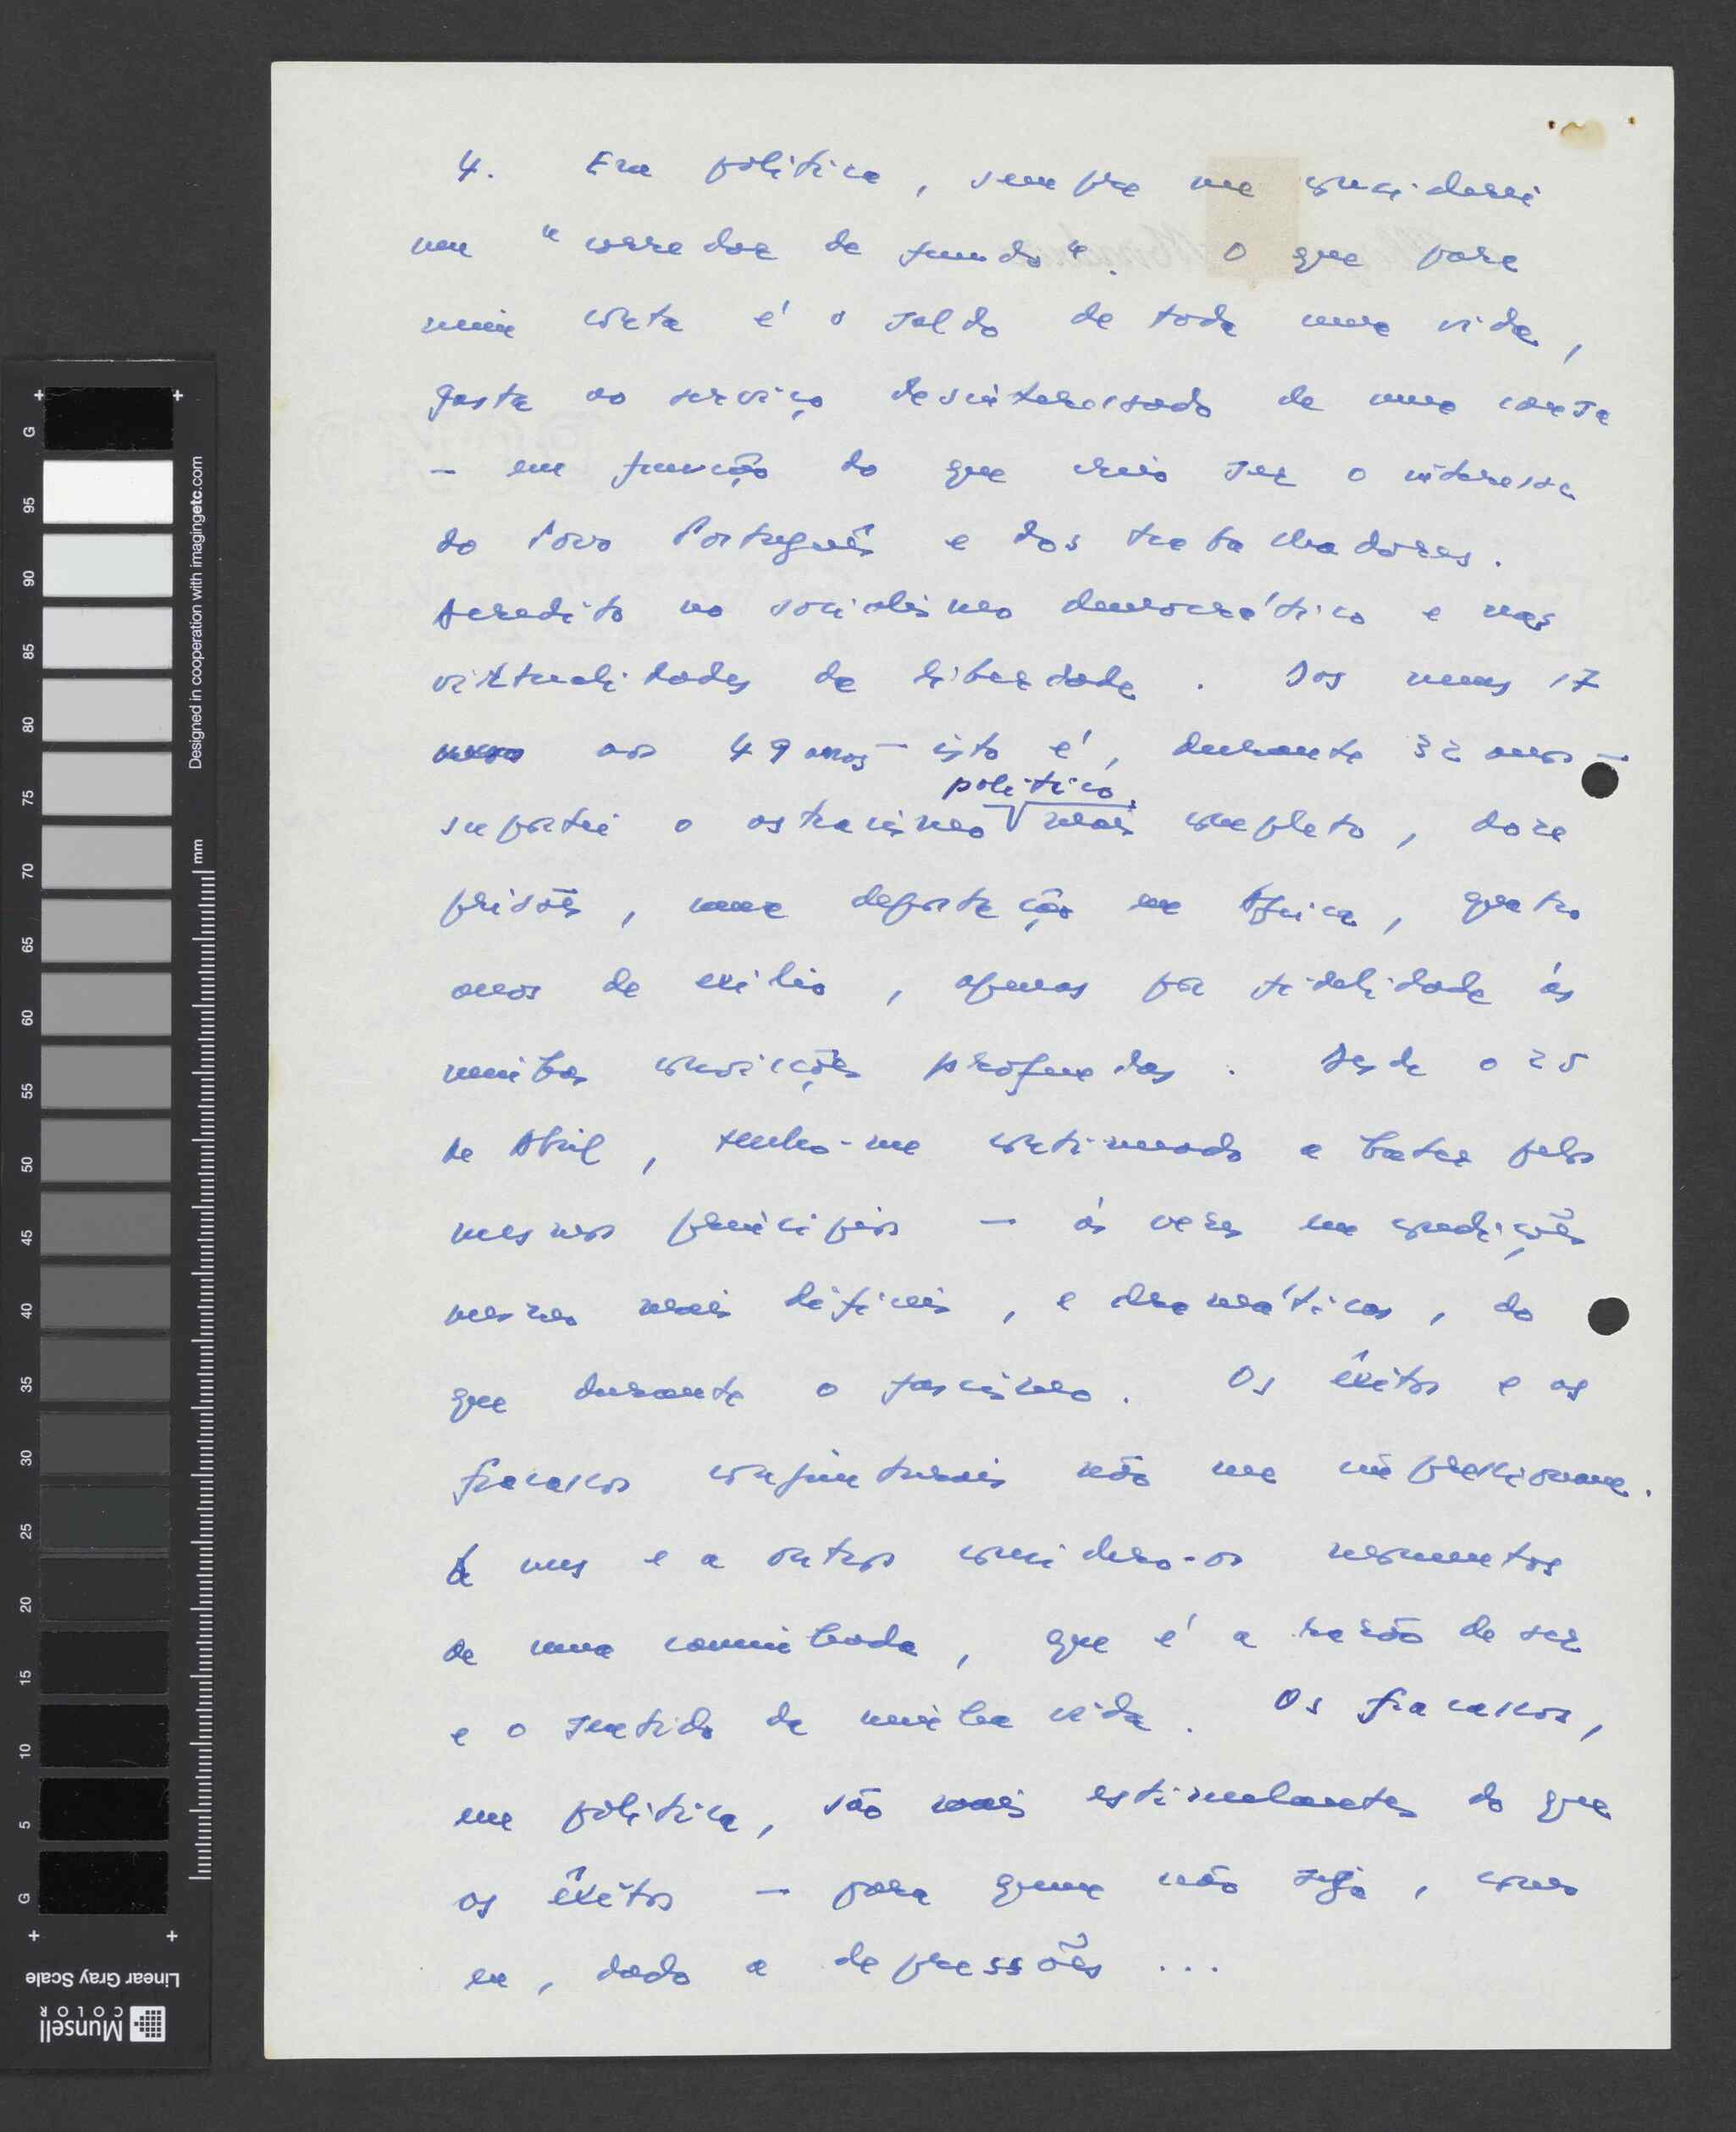 4. Em política, sempre me considerei
um "corredor de fundo". O que para
mim conta é o saldo de toda uma vida,
gasta ao serviço desinteressado de uma causa
— em função do que creio ser o interesse
do Povo Português e dos trabalhadores.
Acredito no socialismo democrático e nas
virtualidades da liberdade. Dos meus 17
aos 49 anos — isto é, durante 32 anos —
político,
suportei o ostracismo mais completo, doze
prisões, uma deportação em África, quatro
anos de exílio, apenas por fidelidade às
minhas convicções profundas. Desde o 25
de Abril, tenho-me continuado a bater pelos
mesmos princípios — às vezes em condições
mesmo mais difíceis, e dramáticas, do
que durante o fascismo. Os êxitos e os
fracassos conjunturais não me impressionam.
A uns e a outros considero-os momentos
de uma caminhada, que é a razão de ser
e o sentido da minha vida. Os fracassos,
em política, são mais estimulantes do que
os êxitos — para quem não seja, como
eu, dado a depressões ...
G 95 90 85 80 75 70 65 60 55 50 45 40 35 30 25 20 15 10 5 G
Designed in cooperation with imagingetc.com
mm
Munsell
COLOR
Linear Gray Scale